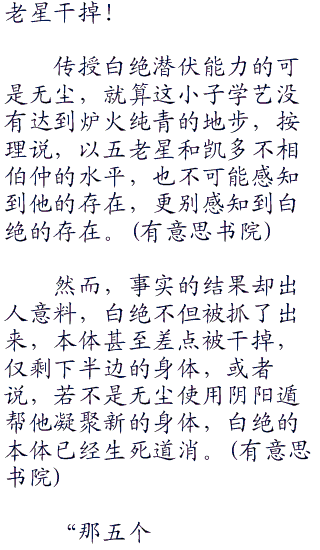 老星干掉！
传授白绝潜伏能力的可
是无尘，就算这小子学艺没
有达到炉火纯青的地步，按
理说，以五老星和凯多不相
伯仲的水平，也不可能感知
到他的存在，更别感知到白
绝的存在。(有意思书院)
然而，事实的结果却出
人意料，白绝不但被抓了出
来，本体甚至差点被干掉，
仅剩下半边的身体，或者
说，若不是无尘使用阴阳遁
帮他凝聚新的身体，白绝的
本体已经生死道消。(有意思
书院)
“那五个